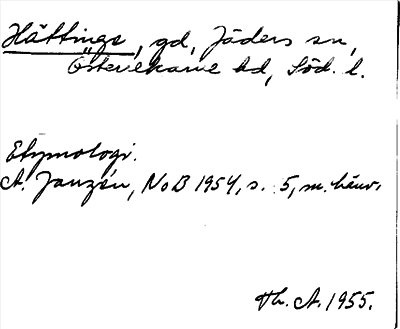 Hättinge, gd, Jäders sn,
Österrekarne hd, Söd. l.
Etymologi.
A. Janzén, NoB 1954, s. 5, m. hänv.
Th. A. 1955.